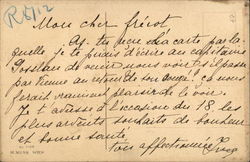 Mon cher frérot
As-tu reçu ma carte par la-
quelle je te priais d'écrire au capitaine
de venir nous voir s'il passe
par Vienne au retour de son ça nous
ferait vraiment plaisir de le voir.
Je t'adresse à l'occasion du 18 les
plus ardents souhaits de bonheur
et bonne santé
Ton affectionnée